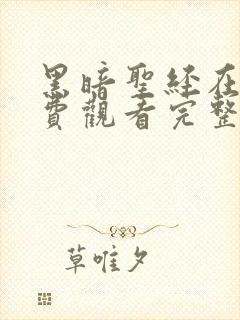 黑暗聖經在
費觀看完整
草唯夕